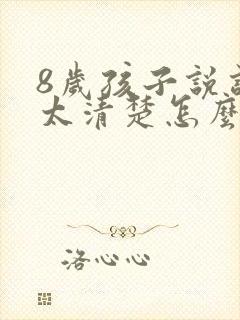 8歲孩子説
太清楚怎麼
洛心心